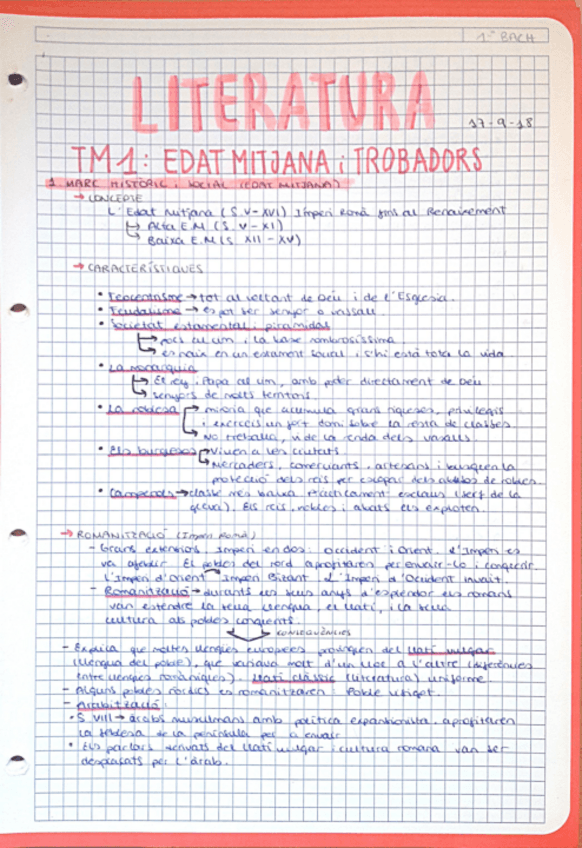 1º BACH
LITERATURA
17-9-18
TM1: EDAT MITJANA i TROBADORS
1. MARC HISTÒRIC i SOCIAL (EDAT MITJANA)
→ CONCEPTE
L'Edat Mitjana (S. V-XVI) Imperi Romà fins al Renaixement
↳ Alta E.M (S. V-XI)
↳ Baixa E.M (S. XII-XV)
→ CARACTERÍSTIQUES
• Teocentrisme → tot al voltant de Déu i de l'Església.
• Feudalisme → es pot ser senyor o vassall.
• Societat estamental i piramidal
↳ pocs al cim i la base nombrosíssima.
↳ es naix en un estament social i s'hi està tota la vida.
• La monarquia
↳ El rey i Papa al cim, amb poder directament de Déu
↳ senyors de molts territoris.
• La noblesa → minoria que acumula grans riqueses, privilegis
i exerceix un fort domini sobre la resta de classes.
↳ No treballa, viu de la renda dels vasalls.
• Els burgesos → Viuen a les ciutats.
↳ Mercaders, comerciants, artesans i busquen la
protecció dels reis per escapar dels de nobles.
• Camperols → classe més baixa. Pràcticament esclaus (serf de la
gleva). Els reis, nobles i abats els exploten.
→ ROMANITZACIÓ (Imperi Romà)
- Grans extensions. Imperi en dos: occident i orient. L'Imperi es
va afeblir. El pobles del nord aprofitaren per envair-lo i conquerir.
L'Imperi d'Orient → Imperi Bizant. L'Imperi d'Occident invaït.
- Romanització → durants els seus anys d'esplendor els romans
van estendre la seua llengua, el llatí, i la seua
cultura als pobles conqerits.
CONSEQÜÈNCIES
- Explica que moltes llengües europees provinguen del llatí vulgar
(llengua del poble), que variava molt d'un lloc a l'altre (diferències
entre llengües romàniques). Llatí clàssic (literatura) uniforme.
- Alguns pobles nòrdics es romanitzaren: Poble visigot.
- Arabització:
• S. VIII → àrabs musulmans amb política expansionista, aprofitaren
la feblesa de la península per a envair
• Els parlars derivats del llatí vulgar i cultura romana van ser
desplaçats per l'àrab.